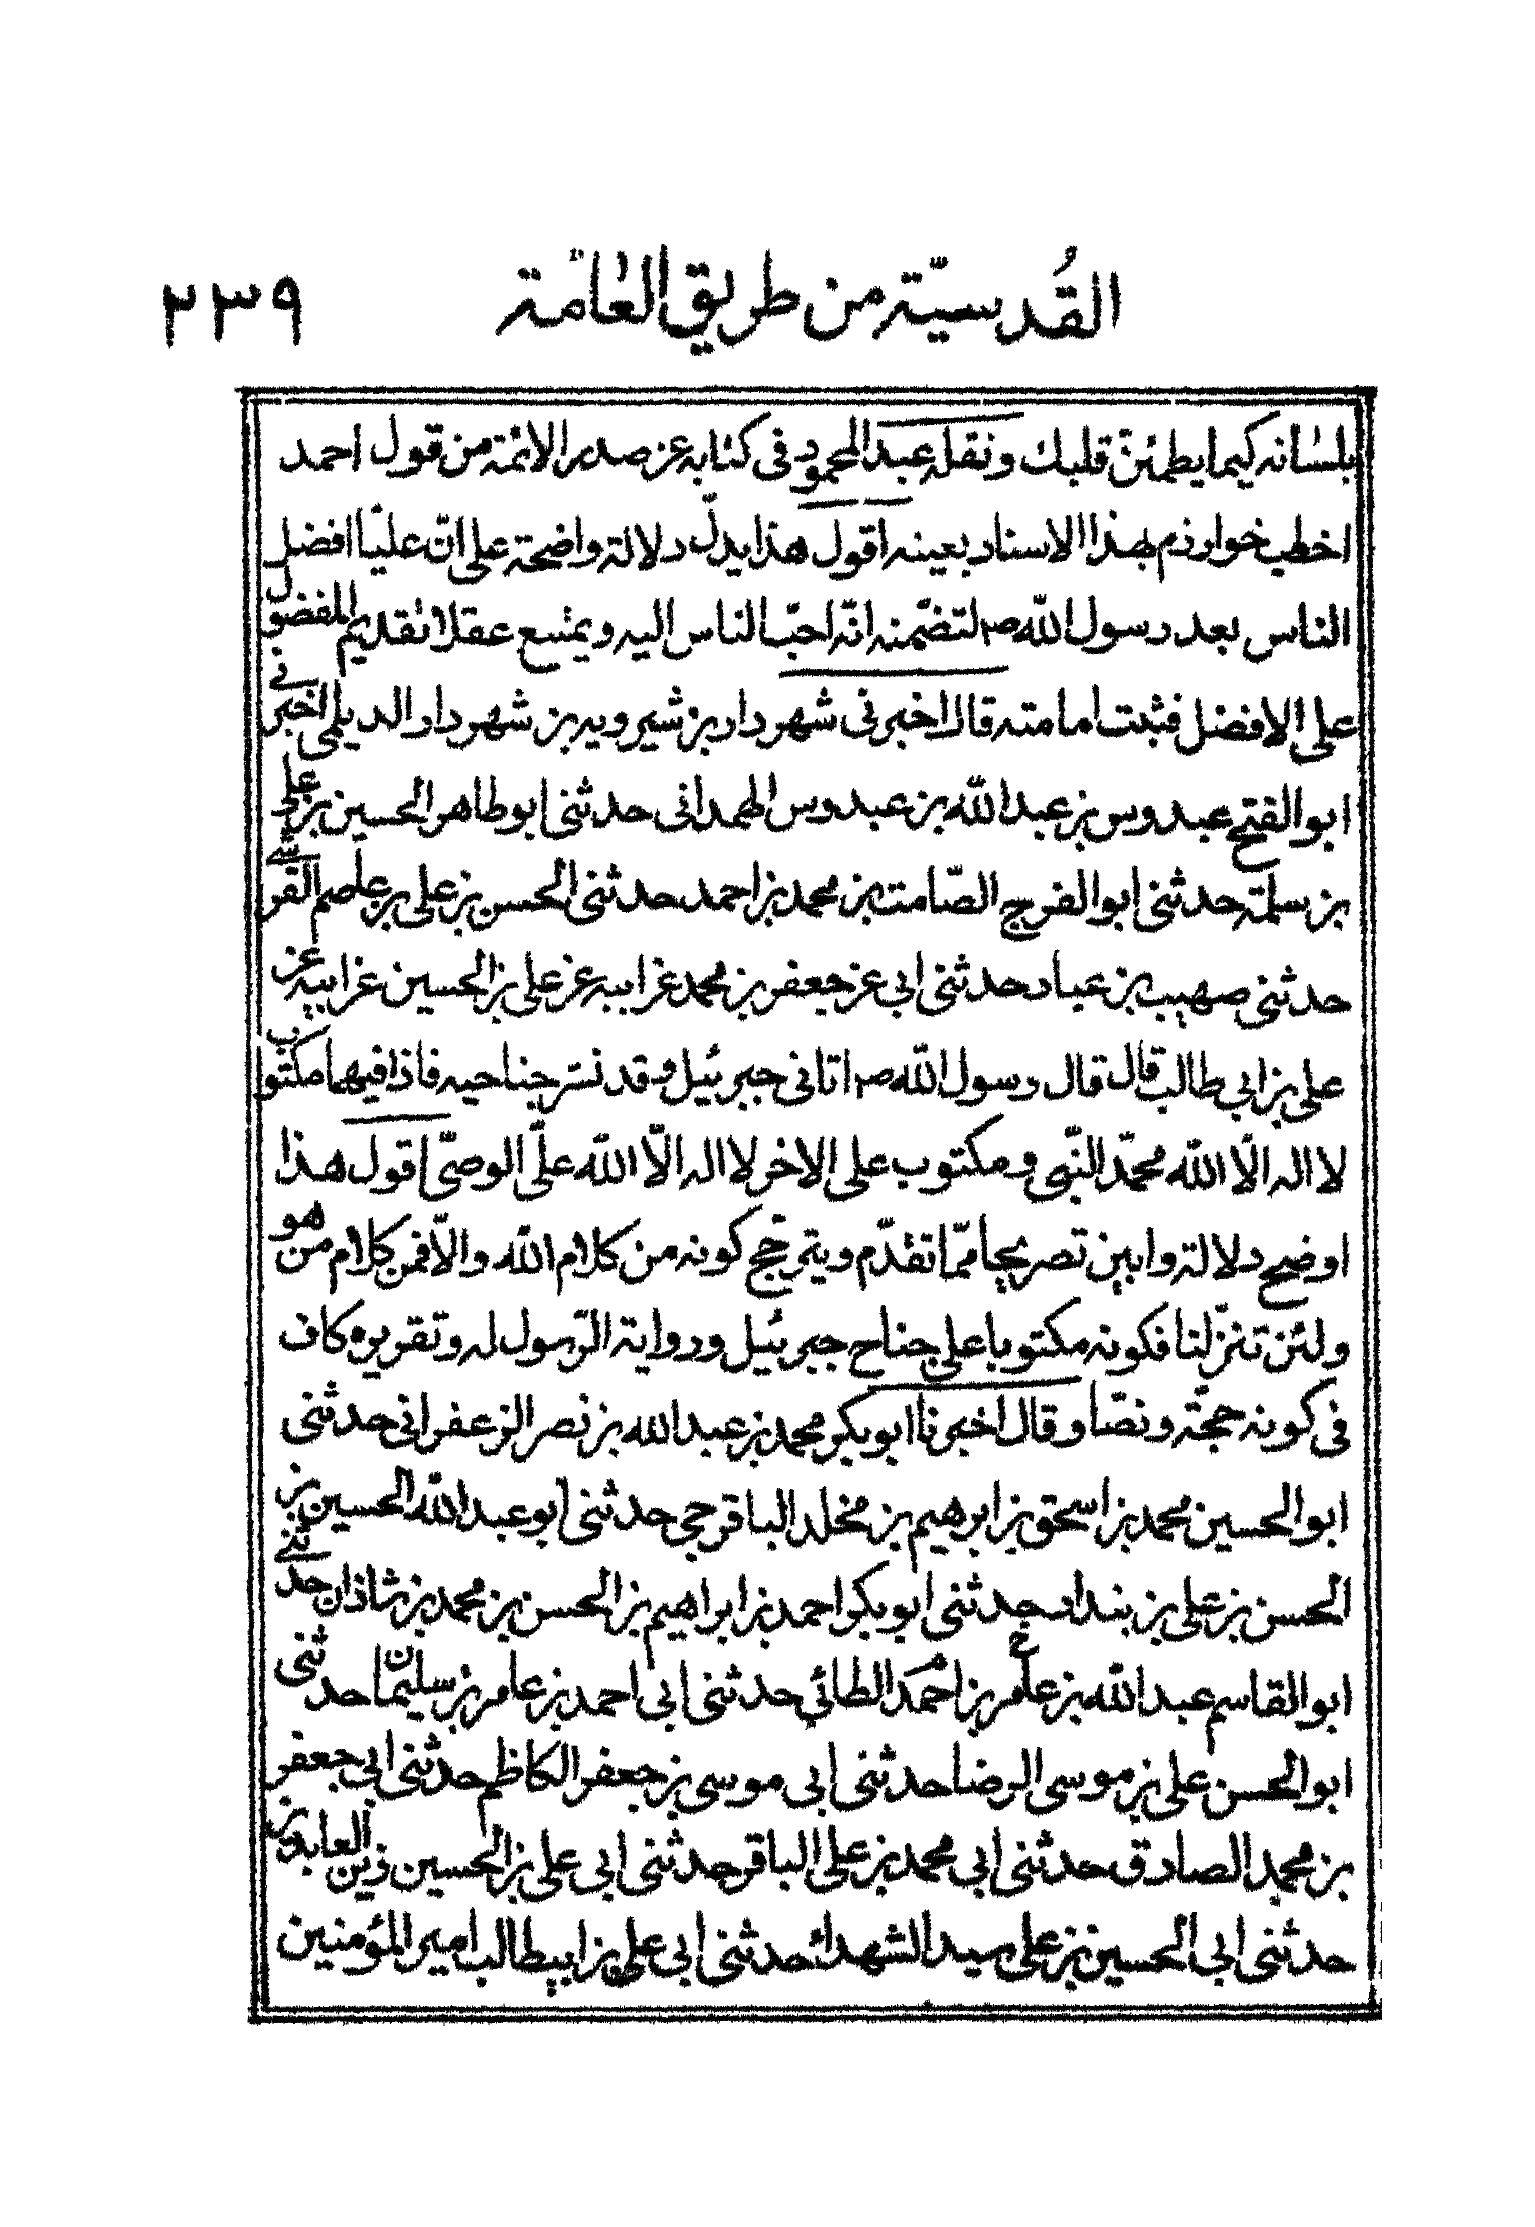 القُدسيّة من طريق العٰامّة ٢٣٩
بلسٰانه كيما يطمئنّ قلبك ونقله عبد المحمود فى كتابه عن صدر الائمّة من قول احمد
اخطب خوارزم بهذا الاسناد بعينه اقول هذا يدلّ دلالة واضحة على انّ عليّا افضل
الناس بعد رسول اللّه ص لتضمّنه انّه احبّ الناس اليه ويمتنع عقلا تقديم المفضول
على الافضل فثبت امامته قال اخبرنى شهردار بن شيرويه بن شهردار الديلمى اخبرنى
ابو الفتح عبدوس بن عبد اللّه بن عبدوس الهمدانى حدثنى ابو طاهر الحسين بن على
بن سلمة حدثنى ابو الفرج الصّامت بن محمد بن احمد حدثنى الحسن بن على بن عاصم القرشى
حدثنى صهيب بن عباد حدثنى ابى عن جعفر بن محمد عن ابيه عن على بن الحسين عن ابيه عن
على بن ابى طالب قال قال رسول اللّه ص اتانى جبرئيل وقد نشر جناحيه فاذا فيهما مكتوب
لا اله الّا اللّه محمّد النّبى ومكتوب على الاخر لا اله الّا اللّه علىّ الوصىّ اقول هذا
اوضح دلالة وابين تصريحا ممّا تقدّم ويترجّح كونه من كلام اللّه والّا فمن كلام من هو
ولئن تنزلنا فكونه مكتوبا على جناح جبرئيل ورواية الرّسول له وتقريره كاف
فى كونه حجّة ونصّا وقال اخبرنا ابو بكر محمد بن عبد اللّه بن نصر الزعفرانى حدثنى
ابو الحسين محمد بن اسحق بن ابرهيم بن مخلد الباقرجى حدثنى ابو عبد اللّه الحسين بن
الحسن بن على بن بندار حدثنى ابو بكر احمد بن ابراهيم بن الحسن بن محمد بن شاذان حدثنى
ابو القاسم عبد اللّه بن عامر بن احمد الطائي حدثنى ابى احمد بن عامر بن سليمان حدثنى
ابو الحسن على بن موسى الرضا حدثنى ابى موسى بن جعفر الكاظم حدثنى ابى جعفر
بن محمد الصادق حدثنى ابى محمد بن على الباقر حدثنى ابى على بن الحسين زين العابدين
حدثنى ابى الحسين بن على سيد الشهداء حدثنى ابى على بن ابيطالب امير المؤمنين